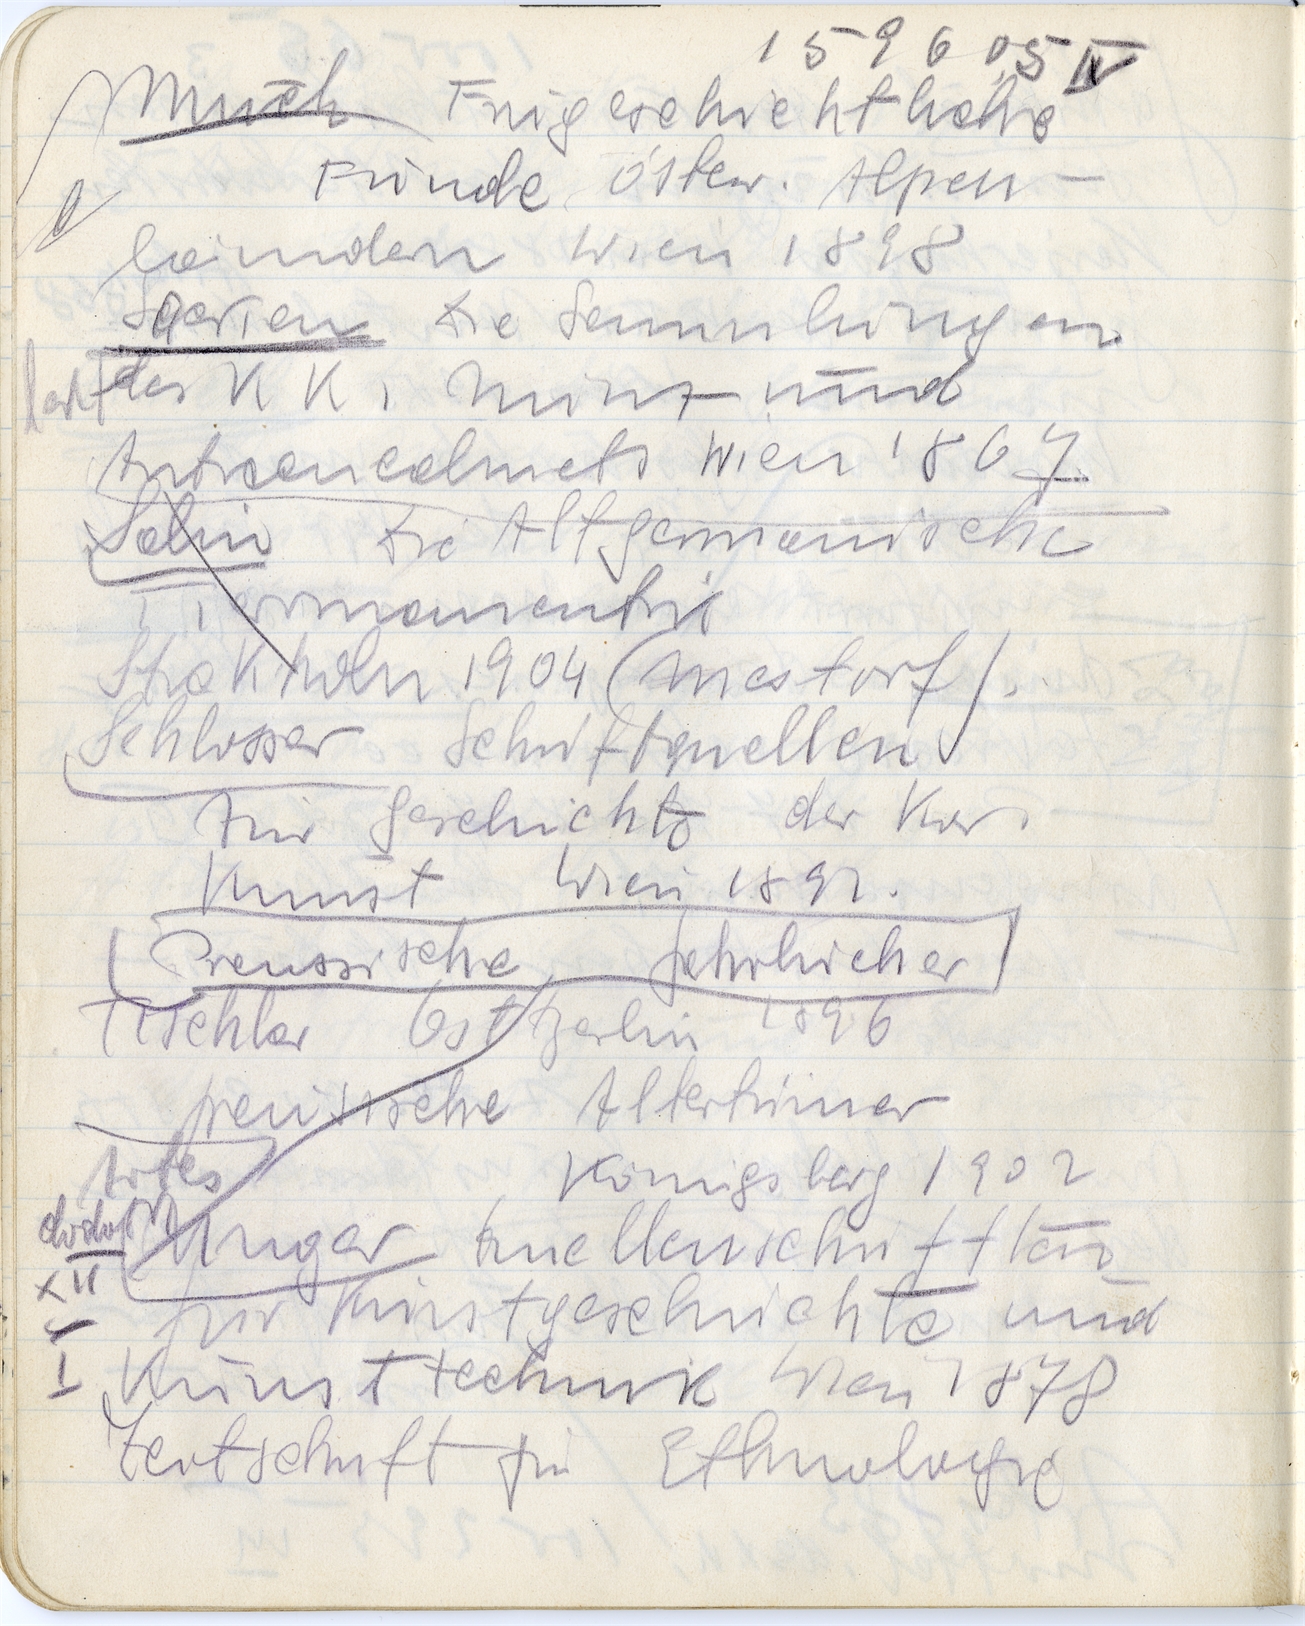 159605 IV
Much Frügeschichtliche
Funde öster. Alpen-
ländern Wien 1898
Sacken Die Sammlungen
des K K, Münz und
Antikencabinets Wien 1867
Salin Die Altgermanische
Tierornamentik
Stokholm 1904 (Mestorf).
Schlosser Schriftquellen
zur Geschichte der Kar.
Kunst Wien 1892.
Preussische Jahrbücher
Tischler Ost Berlin 1896
preussische Altertümer
Königsberg 1902
XII Unger Quellenschriften
für Kunstgeschichte und
I Kunsttechnik Wien 1878
Zeitschrift für Ethnologie